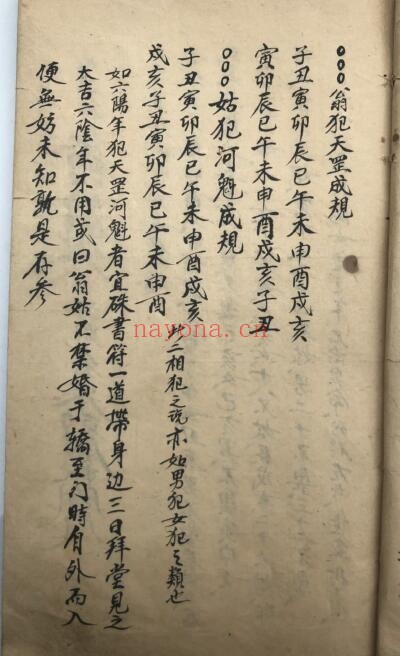 翁犯天罡成規
子丑寅卯辰巳午未申酉戌亥
寅卯辰巳午未申酉戌亥子丑
姑犯河魁成規
子丑寅卯辰巳午未申酉戌亥 此二相犯之说亦如男犯女犯之類也
戌亥子丑寅卯辰巳午未申酉
如六陽年犯天罡河魁者宜硃書符一道帶身边三日拜堂見之
大吉六陰年不用或曰翁姑不禁婚于轎至门時自外而入
便無妨未知孰是存参
nayona.cn